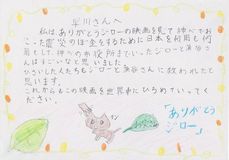 平川さんへ
私はありがとうジローの映画を見て神戸でお
こった震災のぼ金をするために日本を何周も何
周もして、神戸の市役所まで
いったジローと
はすごいなと思いました。
ひさいした人たちもジローと
さんに救われたと
思います。
これからもこの映画を世界中にひろめていってく
ださい。
「ありがとう
ジロー」